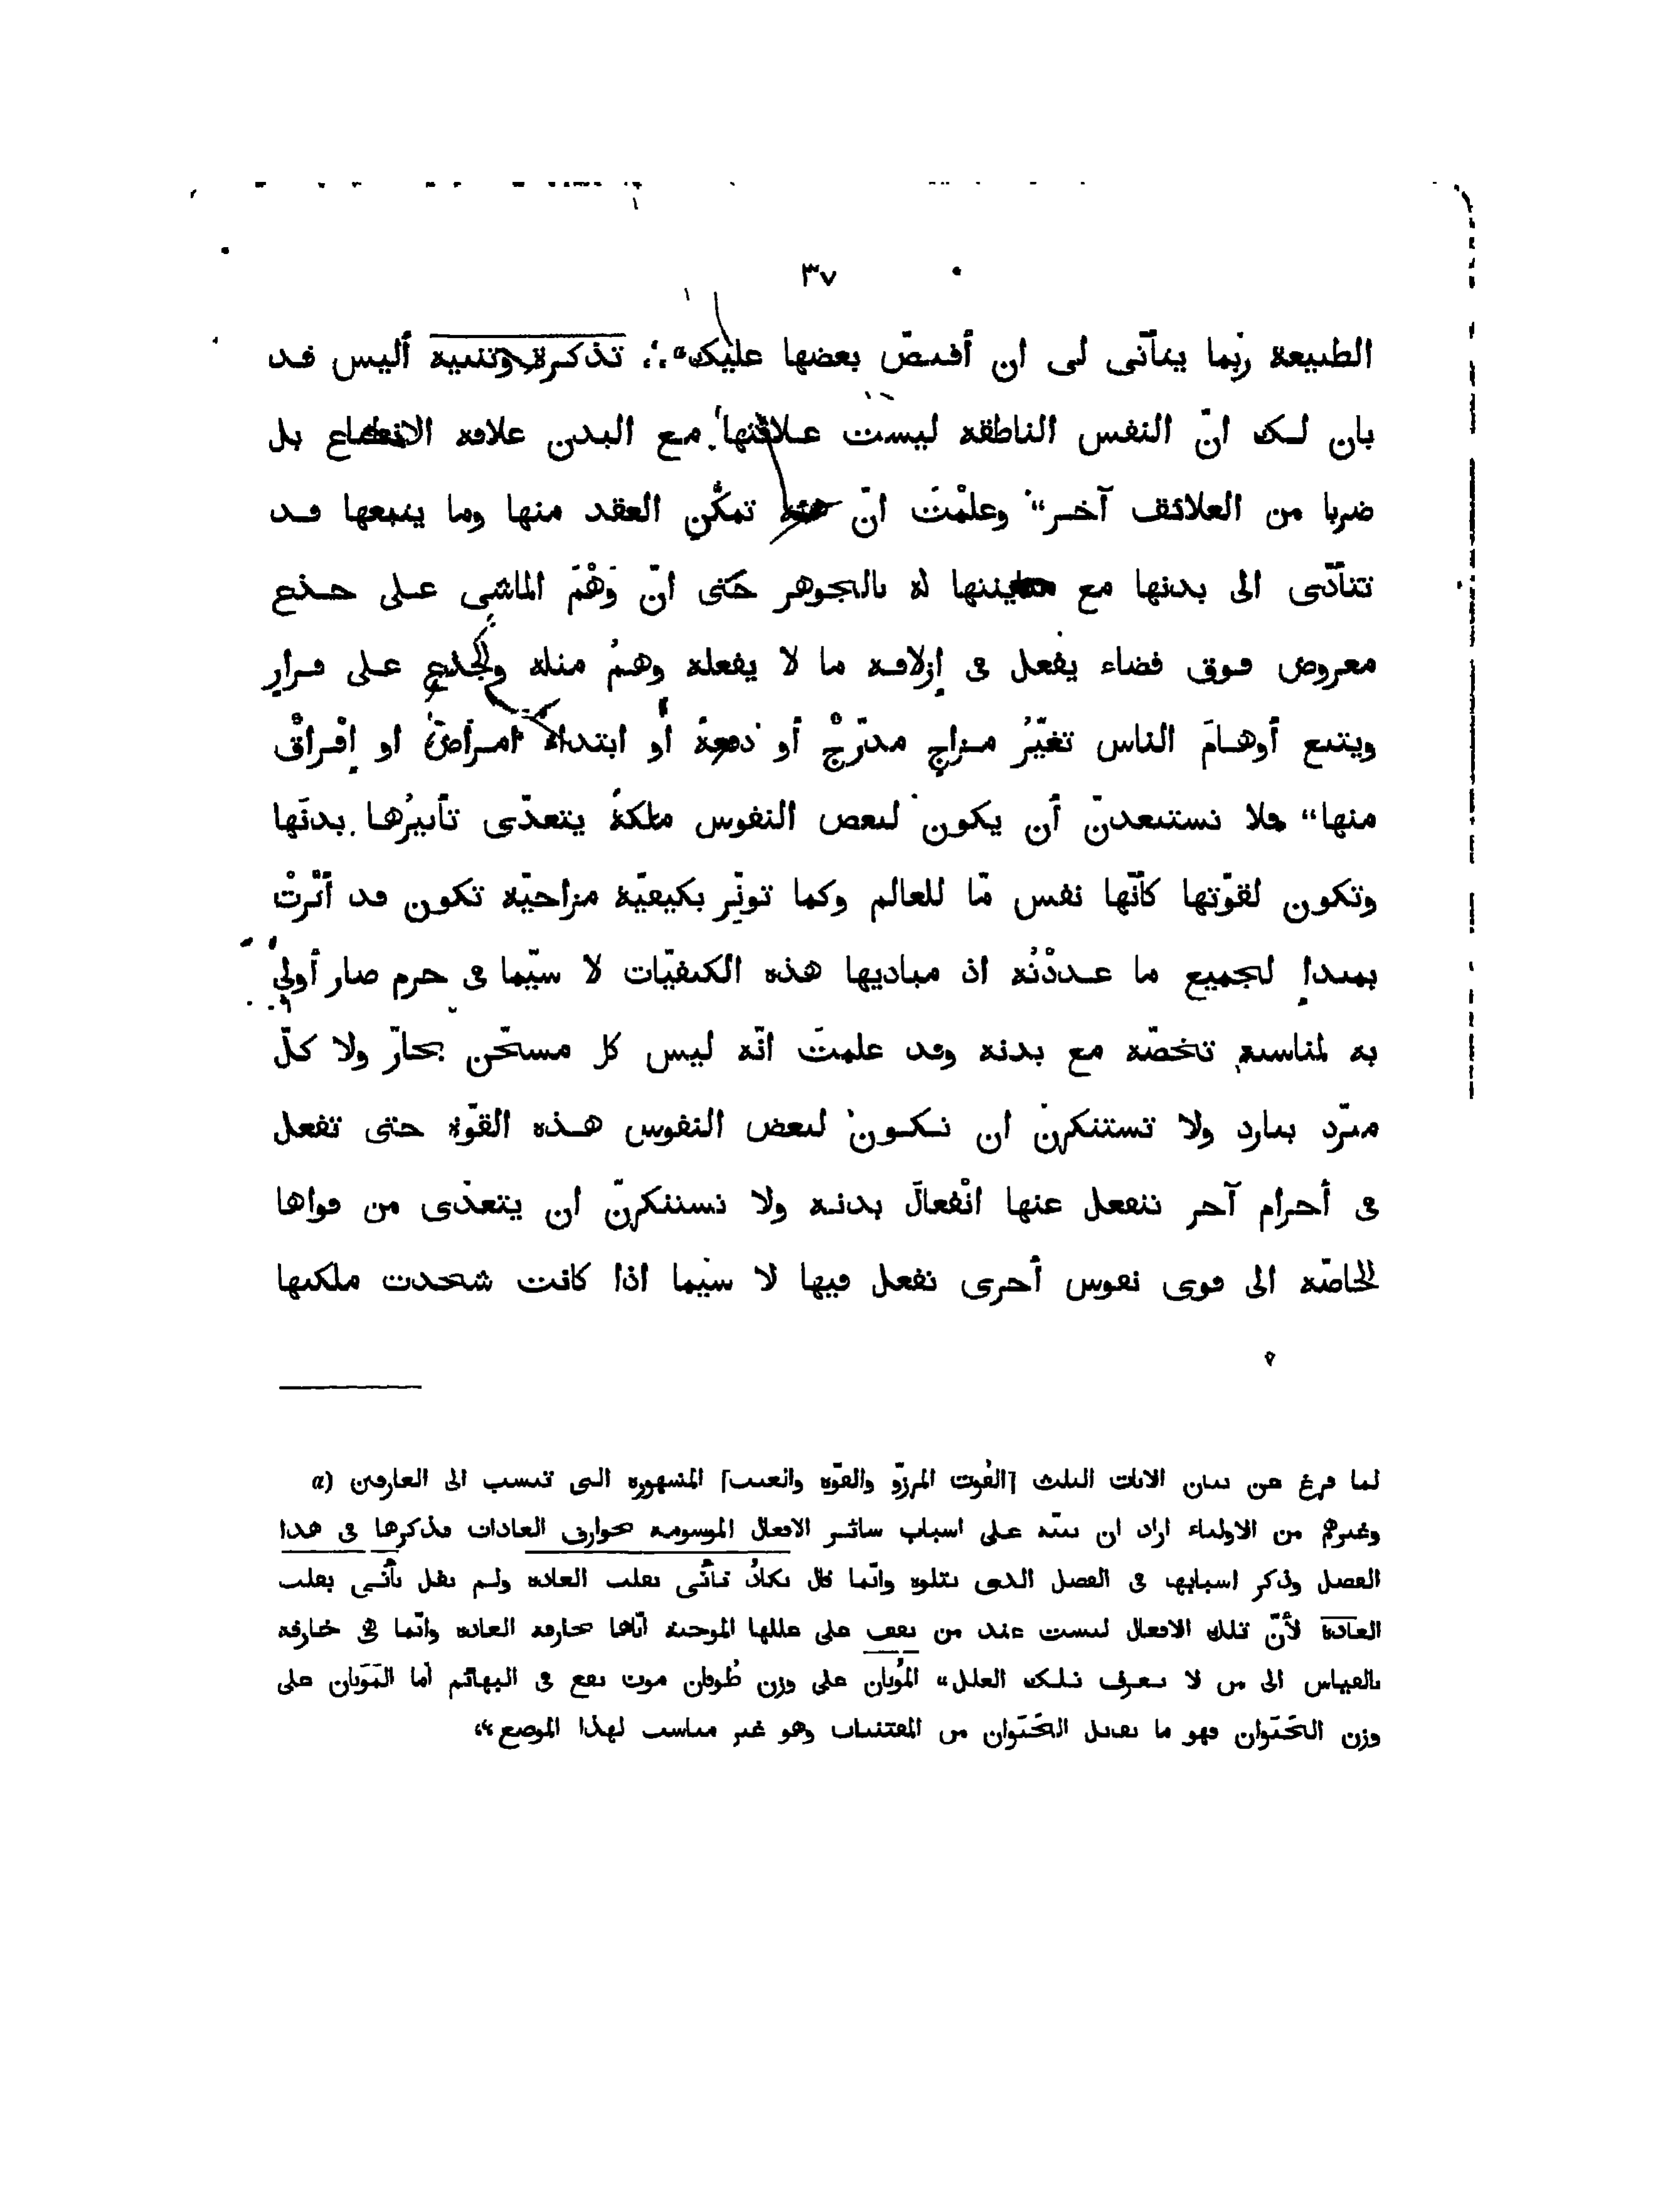 ٣٧
الطبيعة ربّما يتأتّى لى ان أقتصّ بعضها عليك“؛ تذكرة وتنبيه أليس قد
بان لك انّ النفس الناطقة ليست علاقتها مع البدن علاقة الانطباع بل
ضربا من العلائق آخر“ وعلمْتَ انّ تمكّن العقد منها وما يتبعها قد
تتأدّى الى بدنها مع مباينتها له بالجوهر حتى انّ وَهْمَ الماشى على جذع
معروض فوق فضاء يفعل فى إزلاقه ما لا يفعله وهمُ مثله والجذع على قرارٍ
ويتبع أوهامَ الناس تغيّرُ مزاجٍ مدرّجْ أو دفعةً أو ابتداء امراض او إفْراقْ
منها“ فلا تستبعدنّ أن يكون لبعض النفوس ملكةً يتعدّى تأثيرُها بدنَها
وتكون لقوّتها كأنّها نفس مّا للعالم وكما توثّر بكيفيّة مزاجيّة تكون قد أثّرتْ
بمبداٍ لجميع ما عددْتُه اذ مباديها هذه الكيفيّات لا سيّما فى جرم صار أولى
به لمناسبةٍ تخصّه مع بدنه وقد علمتَ انّه ليس كل مسخّن بحارّ ولا كلّ
مبرّد ببارد ولا تستنكرنّ ان تكون لبعض النفوس هذه القوّة حتى تفعل
فى أجرام آخر تنفعل عنها انْفعالَ بدنه ولا تستنكرنّ ان يتعدّى من قواها
الخاصّة الى قوى نفوس أخرى تفعل فيها لا سيّما اذا كانت شحذت ملكتها
a) لما فرغ عن بيان الايات الثلث [القُوت المرزوّ والقوّة والغيب] المشهورة التى تنسب الى العارفين
وغيرهم من الاولياء اراد ان ينبّه على اسباب سائر الافعال الموسومة بخوارق العادات فذكرها فى هذا
الفصل وذكر اسبابها فى الفصل الذى يتلوه وانّما قال تكادُ تأتى بقلب العادة ولم يقل تأتى بقلب
العادة لأنّ تلك الافعال ليست عند من يقف على عللها الموجبة ايّاها خارقة العادة وانّما هى خارقة
بالقياس الى من لا يعرف تلك العلل“ المُوتان على وزن طُوفان موت يقع فى البهائم أما المَوَتان على
وزن الحَيَوان فهو ما يقابل الحَيَوان من المقتنيات وهو غير مناسب لهذا الموضع“